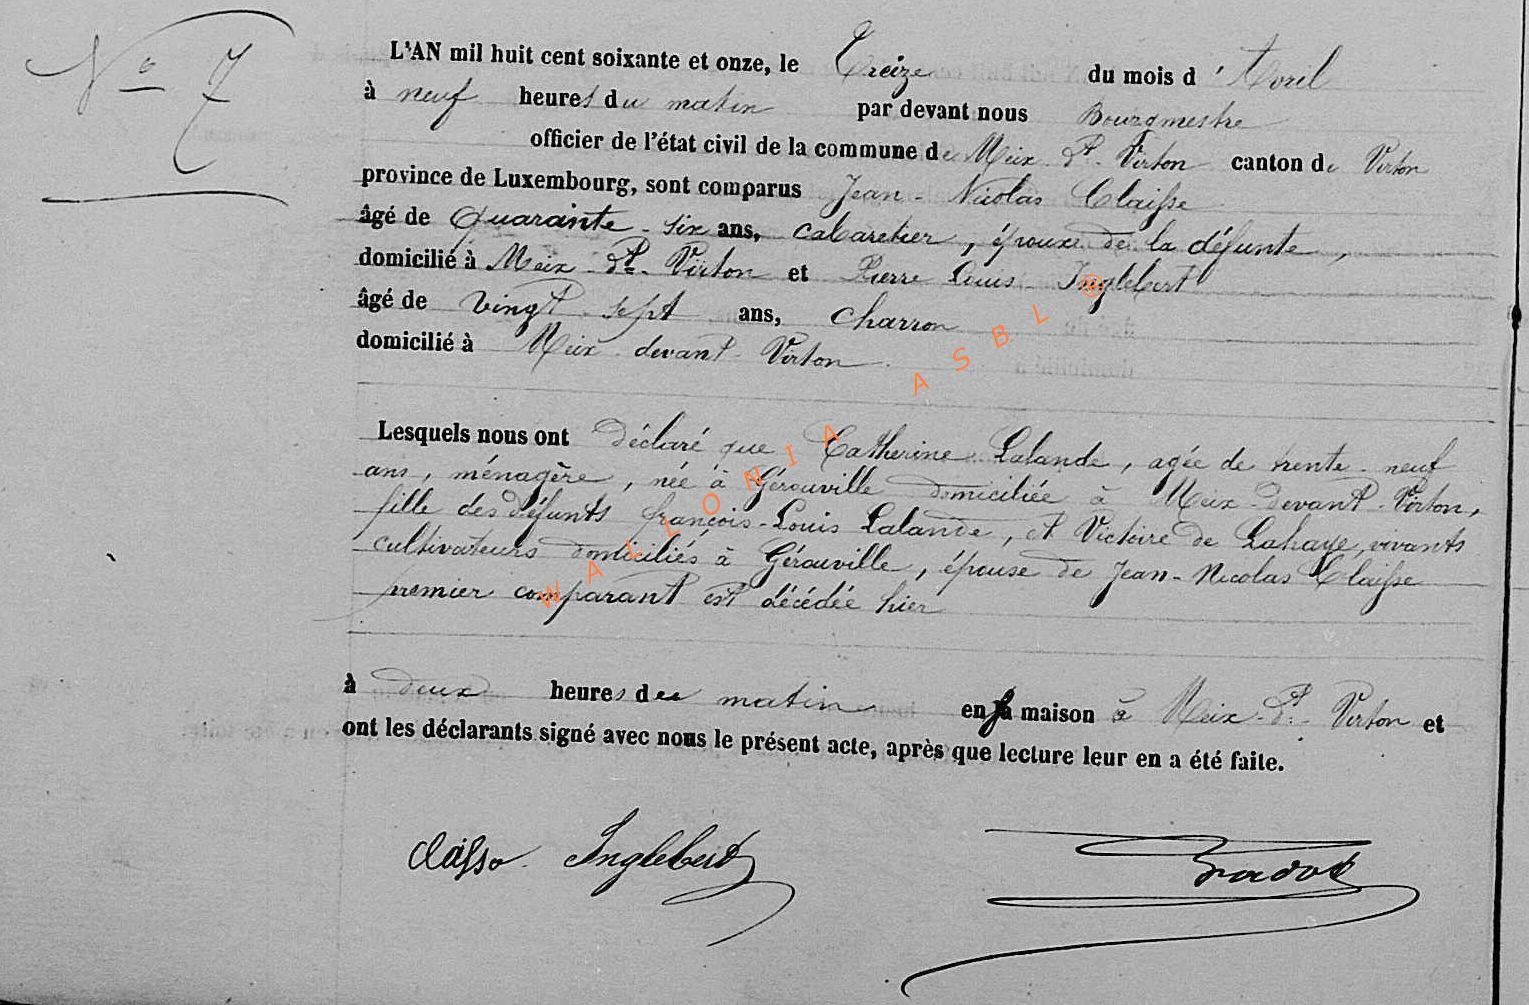 No 7
L'AN mil huit cent soixante et onze, le Treize du mois d'Avril
à neuf heures du matin par devant nous Bourgmestre
officier de l'état civil de la commune de Meix-dt-Virton canton de Virton
province de Luxembourg, sont comparus Jean-Nicolas Claisse
âgé de quarante-six ans, cabaretier, époux de la défunte,
domicilié à Meix-dt-Virton et Pierre Louis Inglebert
âgé de vingt-sept ans, charron
domicilié à Meix-devant-Virton.
Lesquels nous ont déclaré que Catherine Lalande, agée de trente-neuf
ans, ménagère, née à Gérouville domiciliée à Meix-devant-Virton,
fille des défunts françois-Louis Lalande, et Victoire de Lahaye, vivants
cultivateurs domiciliés à Gérouville, épouse de Jean-Nicolas Claisse
premier comparant est décédée hier
à deux heures du matin en sa maison à Meix-dt-Virton et
ont les déclarants signé avec nous le présent acte, après que lecture leur en a été faite.
Claisse Inglebert
WALLONIA ASBL @